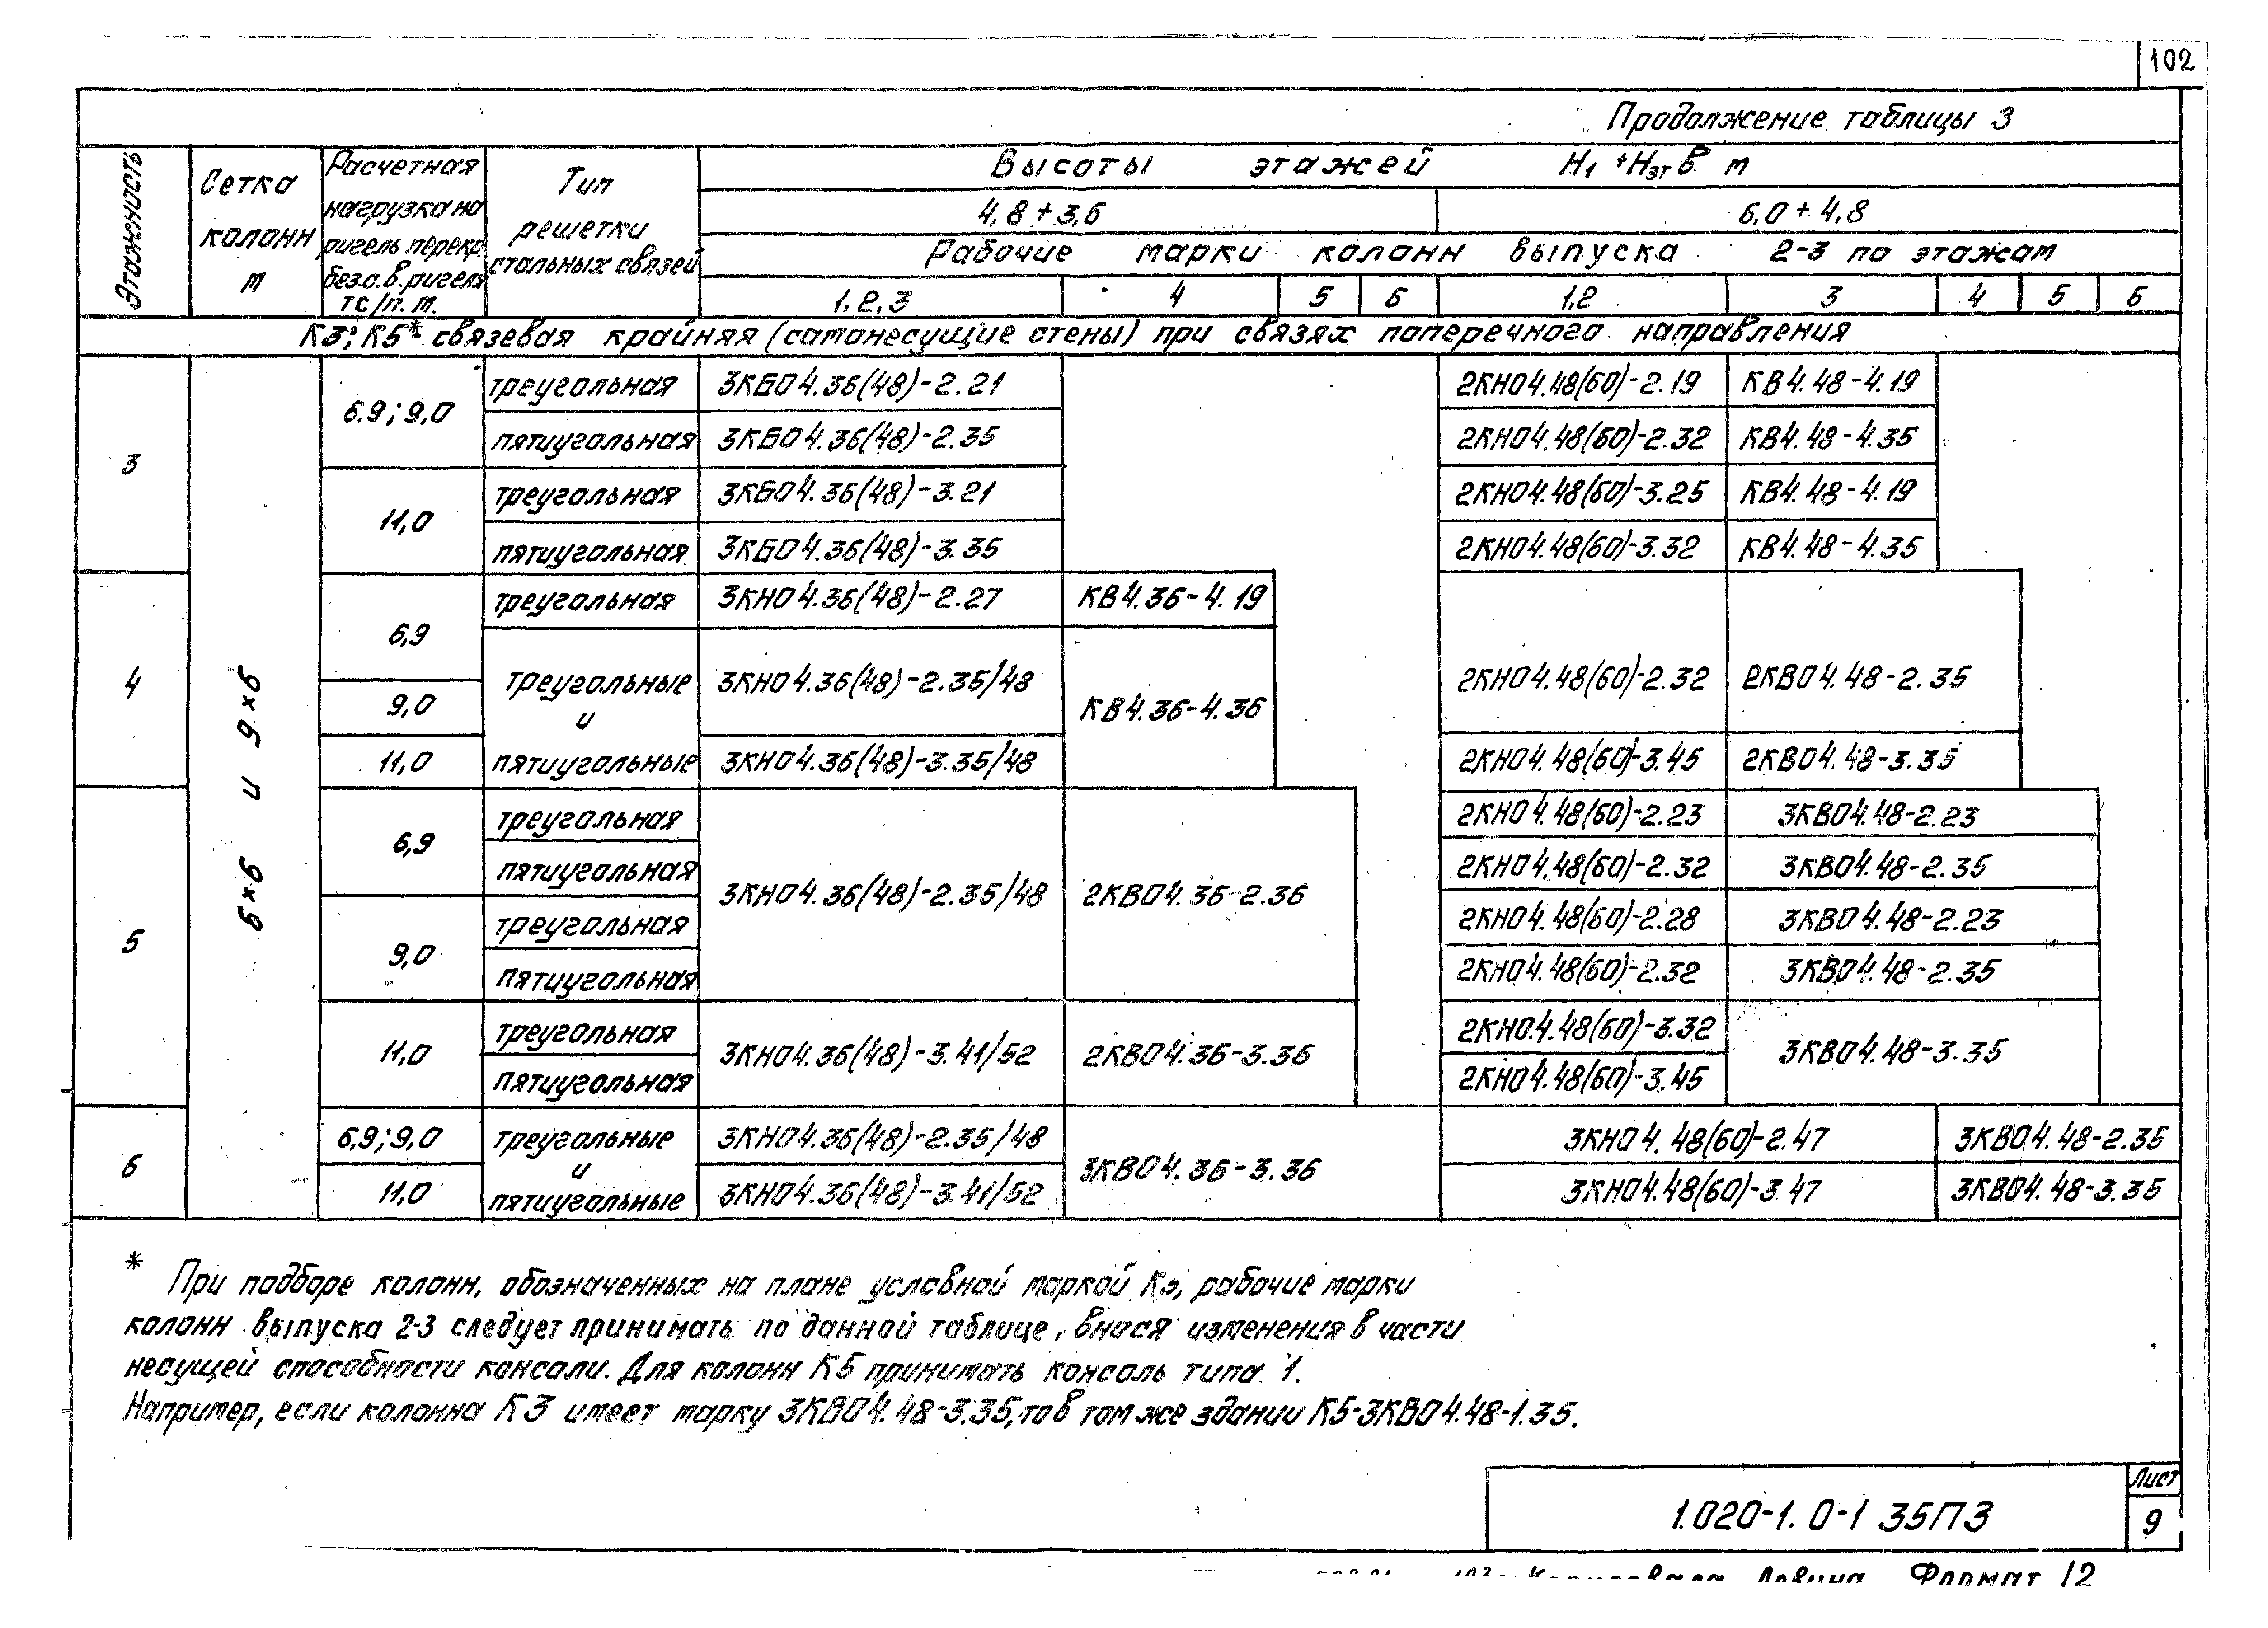 102
Продолжение таблицы 3
Этажность
Сетка колонн м
Расчетная нагрузка на ригель перекр. без с.в. ригеля тс/п.м.
Тип решетки стальных связей
Высоты этажей Н1 + Нэт в м
4,8 + 3,6
6,0 + 4,8
Рабочие марки колонн выпуска 2-3 по этажам
1,2,3 4 5 6 1,2 3 4 5 6
К3; К5*- связевая крайняя (самонесущие стены) при связях поперечного направления
3
6×6 и 9×6
6.9; 9,0
треугольная 3КБО4.36(48)-2.21 2КНО4.48(60)-2.19 КВ4.48-4.19
пятиугольная 3КБО4.36(48)-2.35 2КНО4.48(60)-2.32 КВ4.48-4.35
11,0
треугольная 3КБО4.36(48)-3.21 2КНО4.48(60)-3.25 КВ4.48-4.19
пятиугольная 3КБО4.36(48)-3.35 2КНО4.48(60)-3.32 КВ4.48-4.35
4
6,9
треугольная 3КНО4.36(48)-2.27 КВ4.36-4.19
9,0
треугольные 3КНО4.36(48)-2.35/48 КВ4.36-4.36 2КНО4.48(60)-2.32 2КВО4.48-2.35
и
11,0 пятиугольные 3КНО4.36(48)-3.35/48 2КНО4.48(60)-3.45 2КВО4.48-3.35
5
6,9
треугольная 2КНО4.48(60)-2.23 3КВО4.48-2.23
пятиугольная 2КНО4.48(60)-2.32 3КВО4.48-2.35
3КНО4.36(48)-2.35/48 2КВО4.36-2.36
9,0
треугольная 2КНО4.48(60)-2.28 3КВО4.48-2.23
пятиугольная 2КНО4.48(60)-2.32 3КВО4.48-2.35
11,0
треугольная 2КНО4.48(60)-3.32
3КНО4.36(48)-3.41/52 2КВО4.36-3.36 3КВО4.48-3.35
пятиугольная 2КНО4.48(60)-3.45
6
6,9; 9,0 треугольные 3КНО4.36(48)-2.35/48 3КНО4.48(60)-2.47 3КВО4.48-2.35
и 3КВО4.36-3.36
11,0 пятиугольные 3КНО4.36(48)-3.41/52 3КНО4.48(60)-3.47 3КВО4.48-3.35
* При подборе колонн, обозначенных на плане условной маркой К5, рабочие марки
колонн выпуска 2-3 следует принимать по данной таблице, внося изменения в части
несущей способности консоли. Для колонн К5 принимать консоль типа 1.
Например, если колонна К3 имеет марку 3КВО4.48-3.35, то в том же здании К5-3КВО4.48-1.35.
1.020-1. 0-1 35ПЗ
Лист
9
Копировала Формат 12